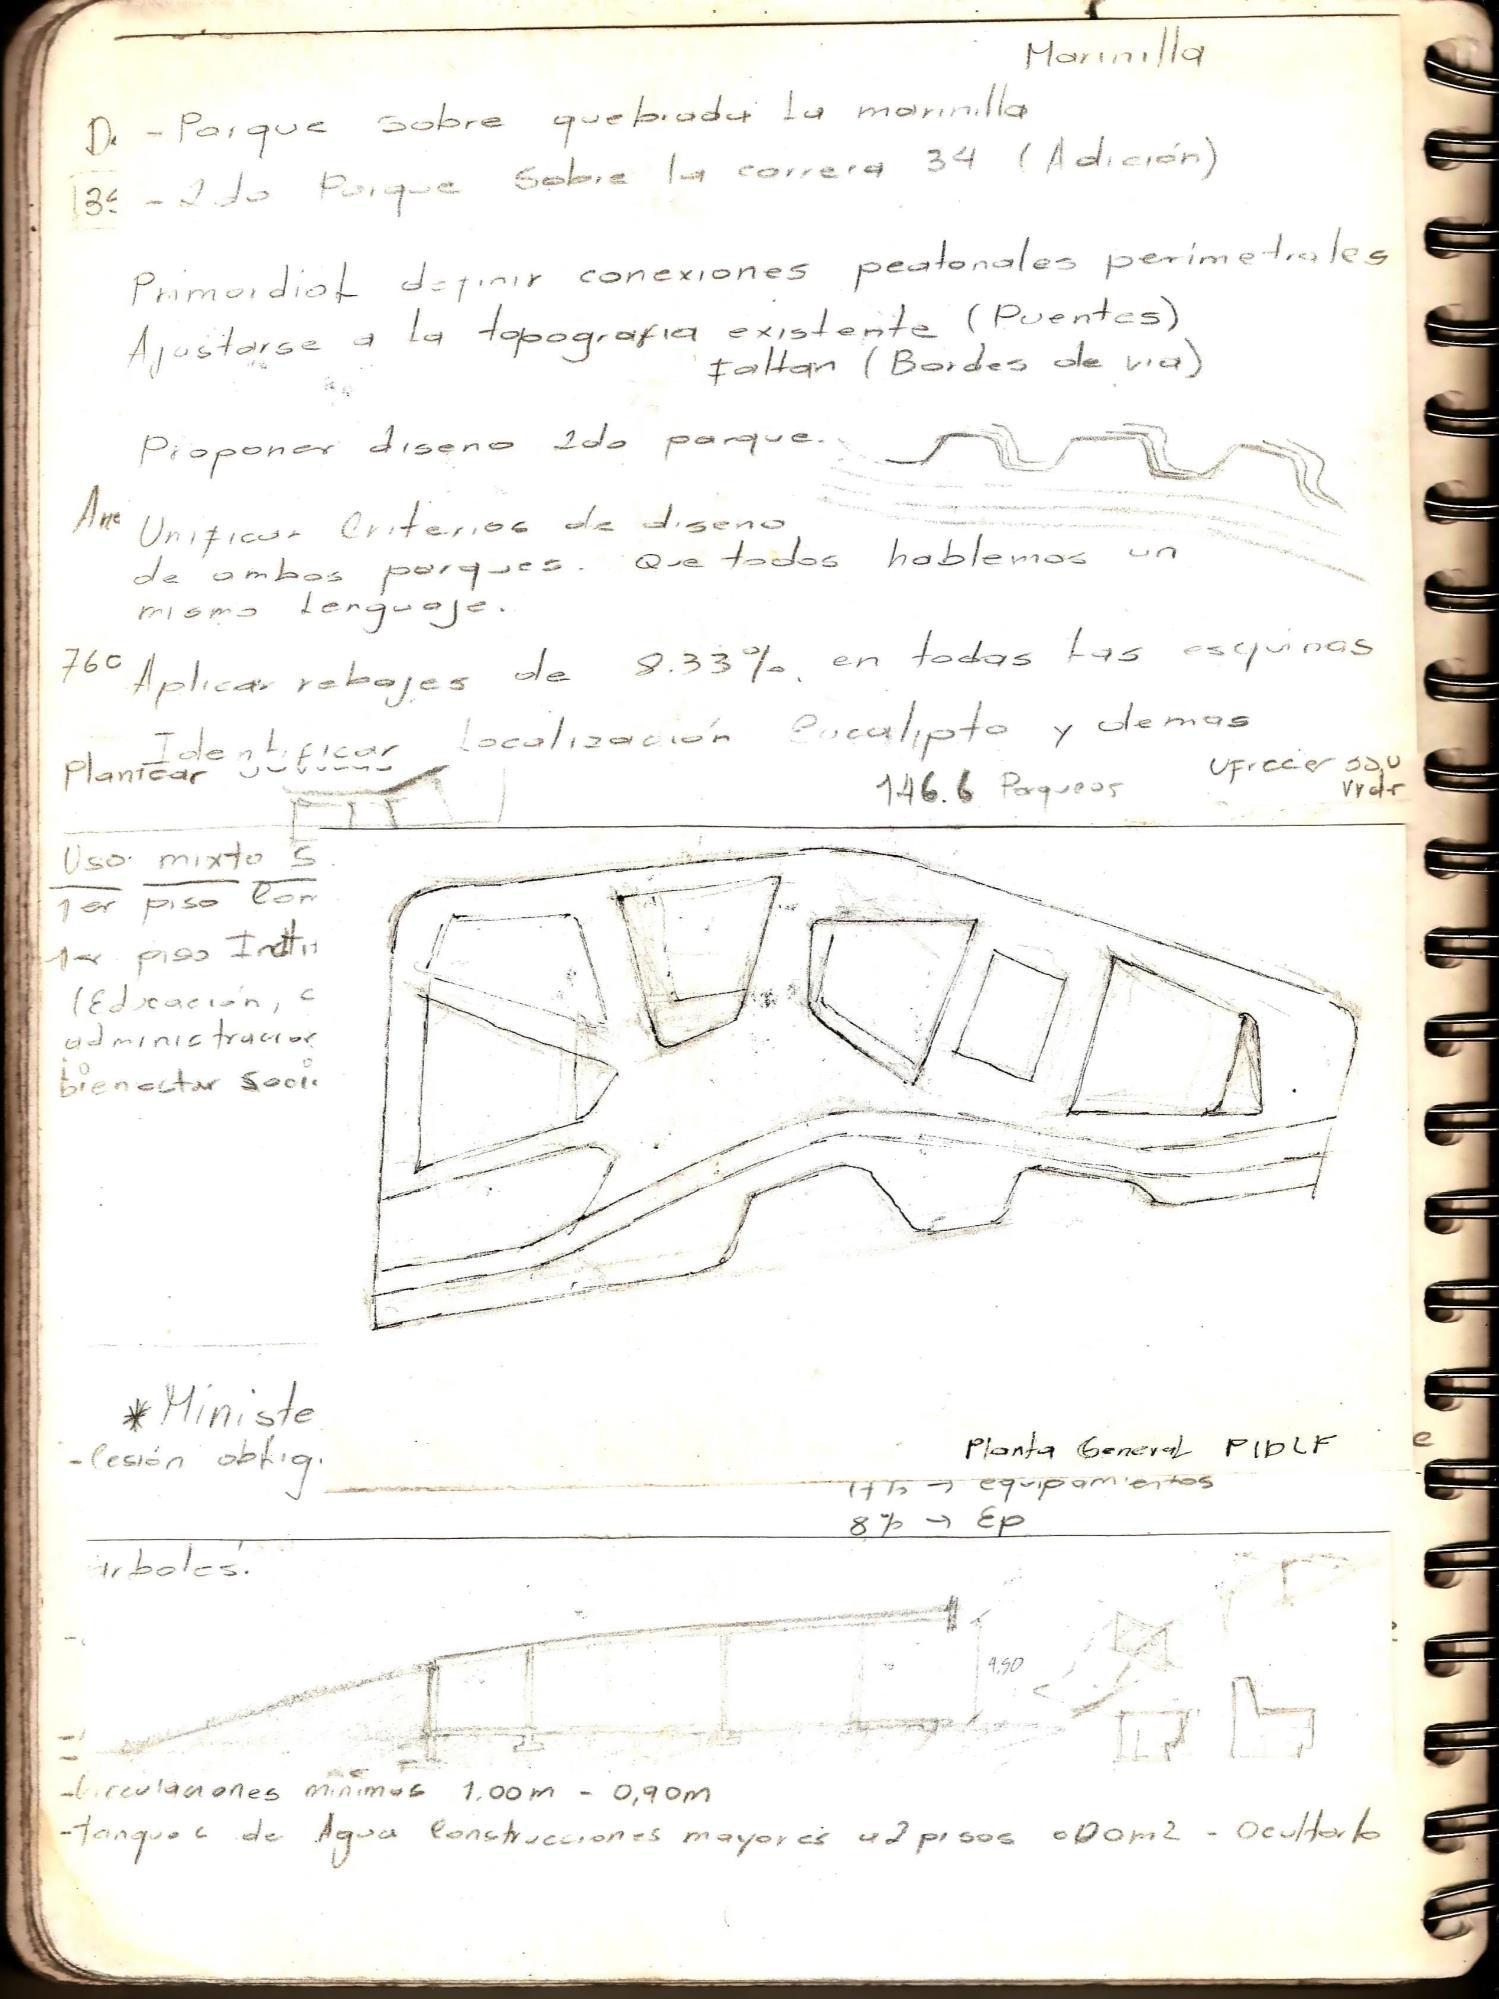 Marinilla
D. - Parque sobre quebrada la marinilla
3ª - 2do Parque sobre la carrera 34 (Adición)
Primordial definir conexiones peatonales perimetrales
Ajustarse a la topografia existente (Puentes)
Faltan (Bordes de via)
Proponer diseno 2do parque.
Unificar Criterios de diseno
de ambos parques. Que todos hablemos un
mismo lenguaje.
760 Aplicar rebajes de 8.33% en todas las esquinas
Identificar Localización Eucalipto y demas
Plantear
146.6 Parqueos
Ofrecer
Uso mixto S
1er piso Com
1er piso Instit
(Educación, c
administracion
bienestar soci
* Ministe
- Cesión oblig.
Planta General PIDLF
e
17% → equipamientos
8% → Ep
arboles.
4.50
- Circulaciones minimas 1.00m - 0,90m
- tanques de Agua Construcciones mayores a 2 pisos m2 - Ocultarlo